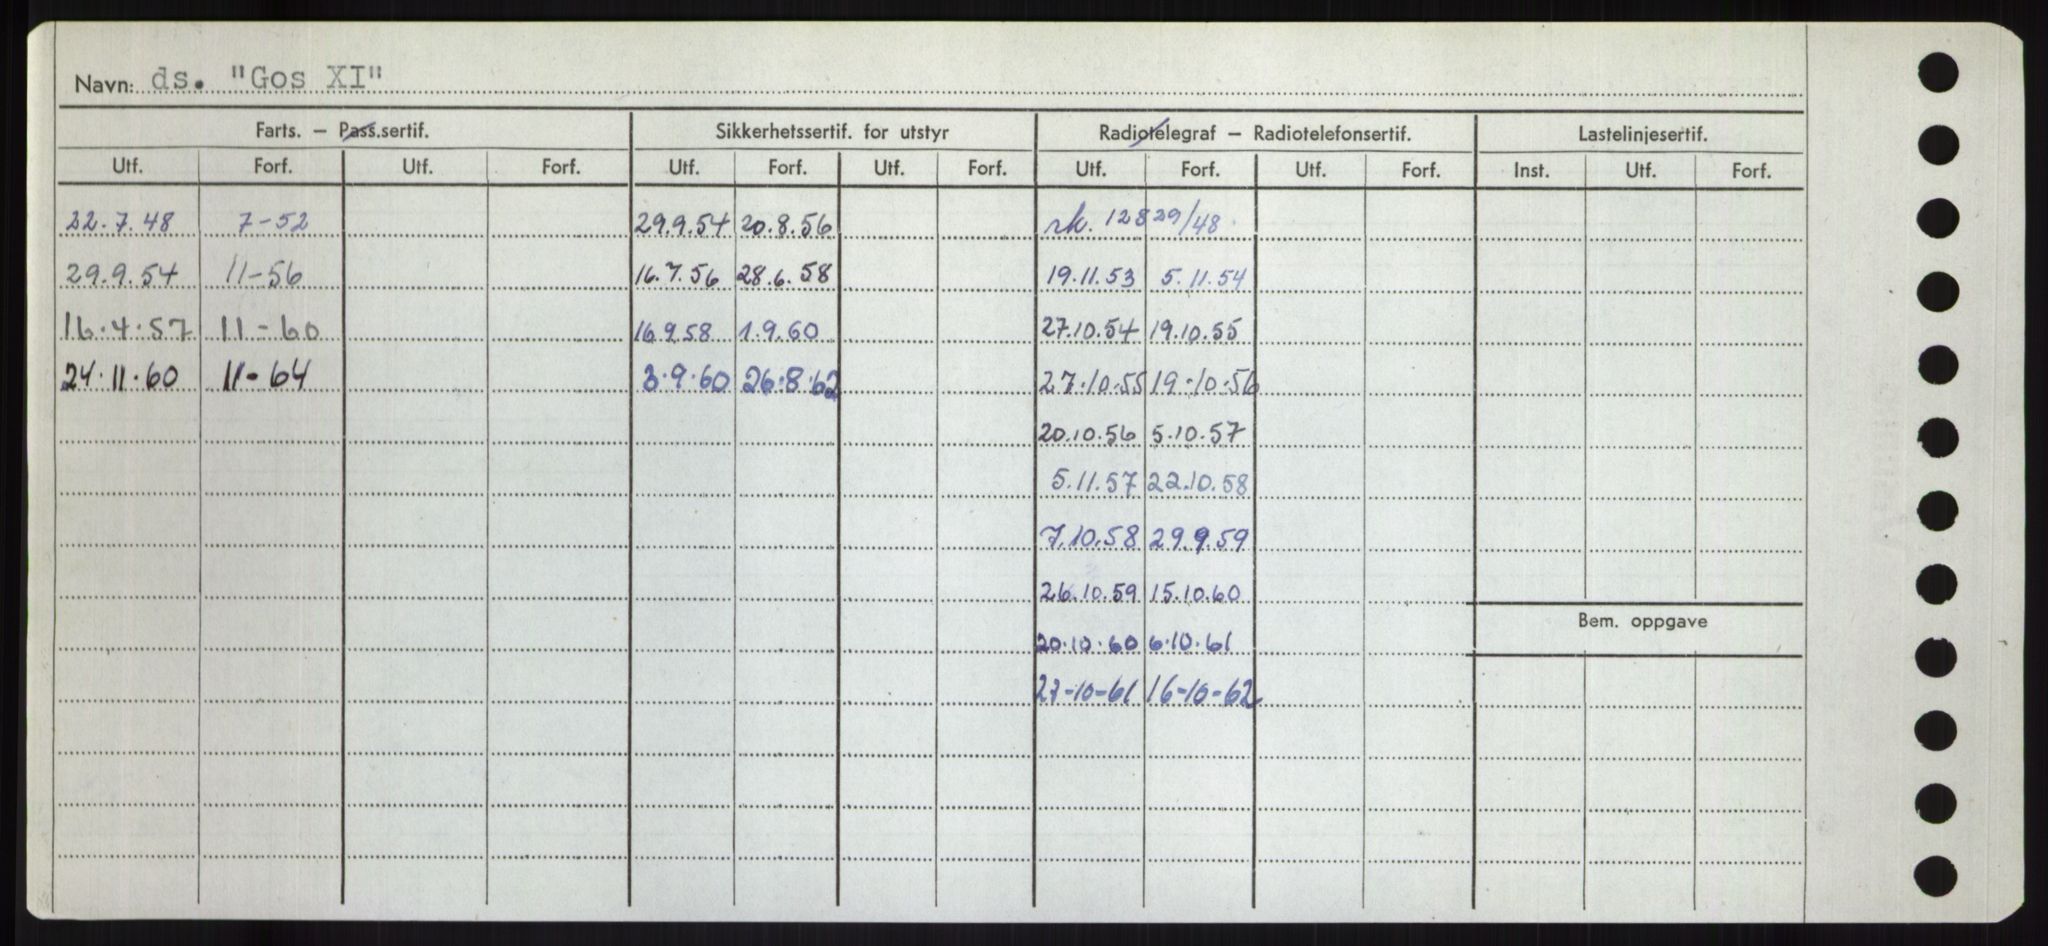 Navn: ds. "Gos XI"
Farts. – Pass.sertif. Sikkerhetssertif. for utstyr Radiotelegraf – Radiotelefonsertif. Lastelinjesertif.
Utf. Forf. Utf. Forf. Utf. Forf. Utf. Forf. Utf. Forf. Utf. Forf. Inst. Utf. Forf.
22.7.48 7-52 29.9.54 20.8.56 rk. 12829/48.
29.9.54 11-56 16.7.56 28.6.58 19.11.53 5.11.54
16.4.57 11-60 16.9.58 1.9.60 27.10.54 19.10.55
24.11.60 11-64 3.9.60 26.8.62 27.10.55 19.10.56
20.10.56 5.10.57
5.11.57 22.10.58
7.10.58 29.9.59
26.10.59 15.10.60
Bem. oppgave
20.10.60 6.10.61
27-10-61 16-10-62